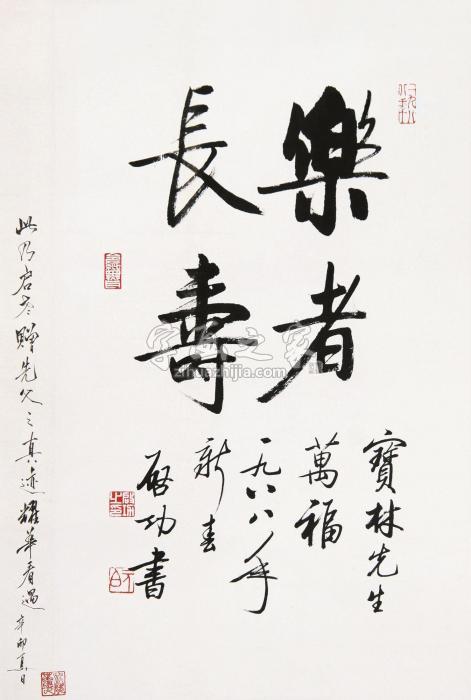 樂者
長壽
寶林先生
萬福
一九八八年
新春
啟功書
此乃启老贈先父之真迹耀華看過
辛卯夏日
字画之家
zihuazhijia.com